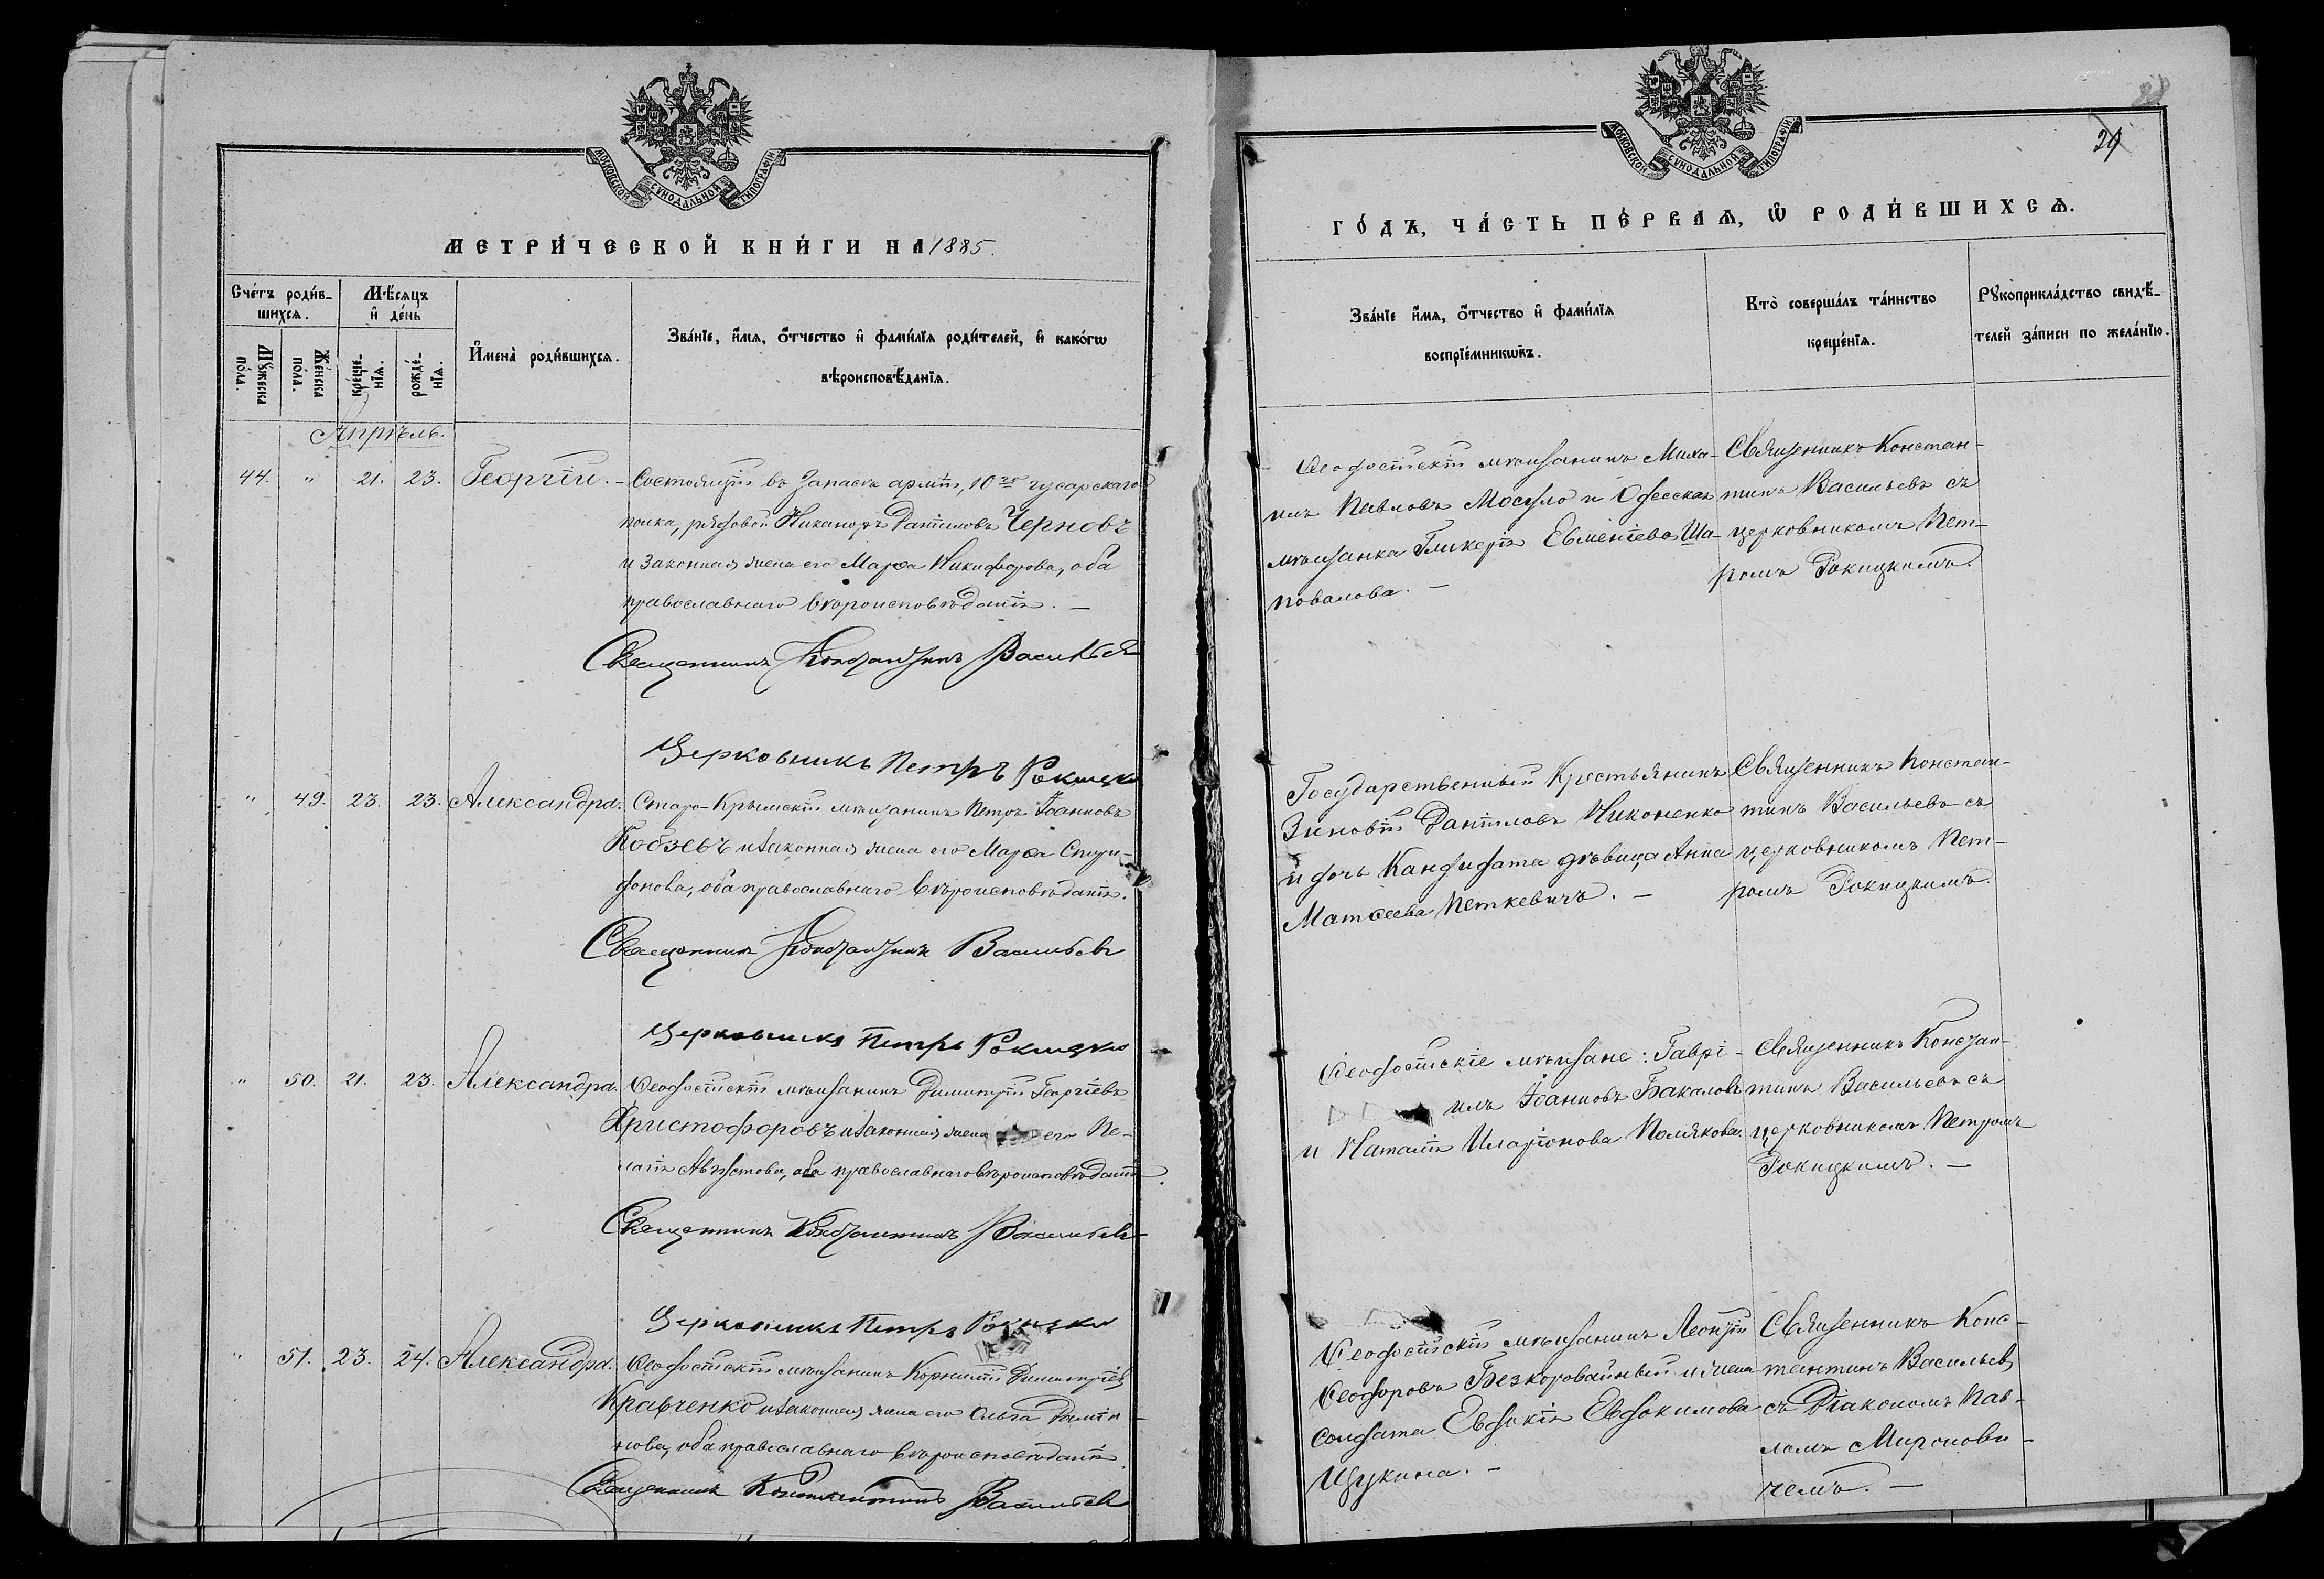 МОСКОВСКОЙ СѴНОДАЛЬНОЙ ТИПОГРАФІИ
МЕТРИ́ЧЕСКОЙ КНИ́ГИ НА 1885.
Сче́тъ роди́в-
шихсѧ.
Мѣ́сѧцъ
и҆ де́нь
И҆мена̀ роди́вшихсѧ.
Зва́нїе, и҆́мѧ, ѻ҆́тчество и҆ фами́лїѧ роди́телей, и҆ како́гѡ
вѣроисповѣ́данїѧ.
Мꙋ́жеска
по́ла.
Же́нска
по́ла.
креще́-
нїѧ.
рожде́-
нїѧ.
Апрѣль.
44. " 21. 23. Георгій. – Состоящій въ запасѣ арміи, 10го гусарскаго
полка, рядовой Никаноръ Даніиловъ Черновъ
и законная жена его Марѳа Никифорова, оба
православнаго вѣроисповѣданія. –
Священникъ Константинъ Васильев
Церковникъ Петръ Рокицкі
" 49. 23. 23. Александра. Старо-Крымскій мѣщанинъ Петръ Іоанновъ
Кобзевъ и законная жена его Марѳа Спири-
донова, оба православнаго вѣроисповѣданія.
Священникъ Константинъ Васильевъ
Церковникъ Петръ Рокицкі
" 50. 21. 23. Александра. Ѳеодосійскій мѣщанинъ Димитрій Георгіевъ
Христофоровъ и законная жена его Пе-
лагія Августова, оба православнаго вѣроисповѣданія.
Священникъ Константинъ Васильев
Церковникъ Петръ Рокицкі
" 51. 23. 24. Александра. Ѳеодосійскій мѣщанинъ Корнилій Димитріев
Кравченко и законная жена его Ольга
нова, оба православнаго вѣроисповѣданія.
Священникъ Константинъ Васильев
МОСКОВСКОЙ СѴНОДАЛЬНОЙ ТИПОГРАФІИ
28
29
ГО́ДЪ, ЧА́СТЬ ПЕ́РВАѦ, Ѡ҆ РОДИ́ВШИХСѦ.
Зва́нїе и҆́мѧ, ѻ҆́тчество и҆ фами́лїѧ
воспрїе́мникѡвъ.
Кто̀ соверша́лъ та́инство
креще́нїѧ.
Рꙋкоприкла́дство свидѣ́-
телей за́писи по жела́нїю.
Ѳеодосійскій мѣщанинъ Миха-
илъ Павловъ Мосуло и Одесская
мѣщанка Гликерія Евменіева Ша-
повалова. –
Священникъ Констан-
тинъ Васильевъ съ
церковникомъ Пет-
ромъ Рокицкимъ.
Государственный Крестьянинъ
Зиновій Даніиловъ Никоненко
и дочь Кандидата дѣвица Анна
Матѳеева Петкевичъ. –
Священникъ Констан-
тинъ Васильевъ съ
церковникомъ Пет-
ромъ Рокицкимъ.
Ѳеодосійскіе мѣщане: Гаврі-
илъ Іоанновъ Бакаловъ
и Наталія Иларіонова Полякова.
Священникъ Констан-
тинъ Васильевъ съ
церковникомъ Петромъ
Рокицкимъ. –
Ѳеодосійскій мѣщанинъ Леонтій
Ѳеодоровъ Безкоровайный и жена
солдата Евдокія Евдокимова
Щукина. –
Священникъ Конс-
тантинъ Васильевъ
съ Діакономъ Пав-
ломъ Миронови-
чемъ. –